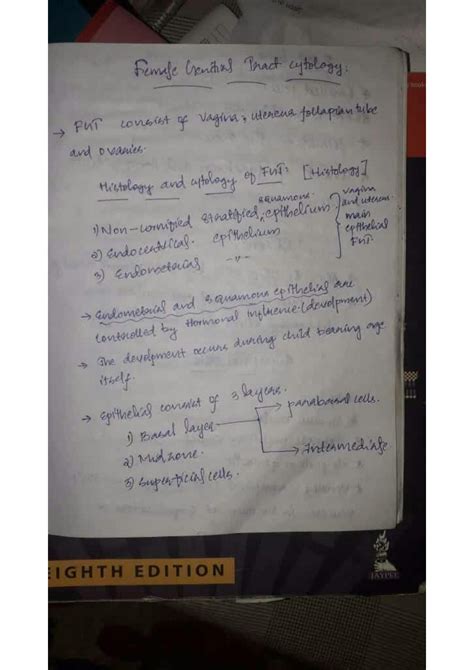 Female Genital Tract cytology:
→ FGT consist of vagina, uterus follapian tube
and ovaries.
Histology and cytology of FGT: [Histology]
1) Non-cornified stratified squamous epithelium
2) Endocervical epithelium
3) Endometrial -"-
vagina
and uterus
main
epithelial
FGT.
→ Endometrial and squamous epithelial are
controlled by Hormonal influence (devolpment)
→ The devolpment occurs during child bearing age
itself.
→ Epithelial consist of 3 layers.
1) Basal layer → parabasal cells.
→ Intermediate
2) Midzone.
3) superficial cells.
EIGHTH EDITION
JAYPEE